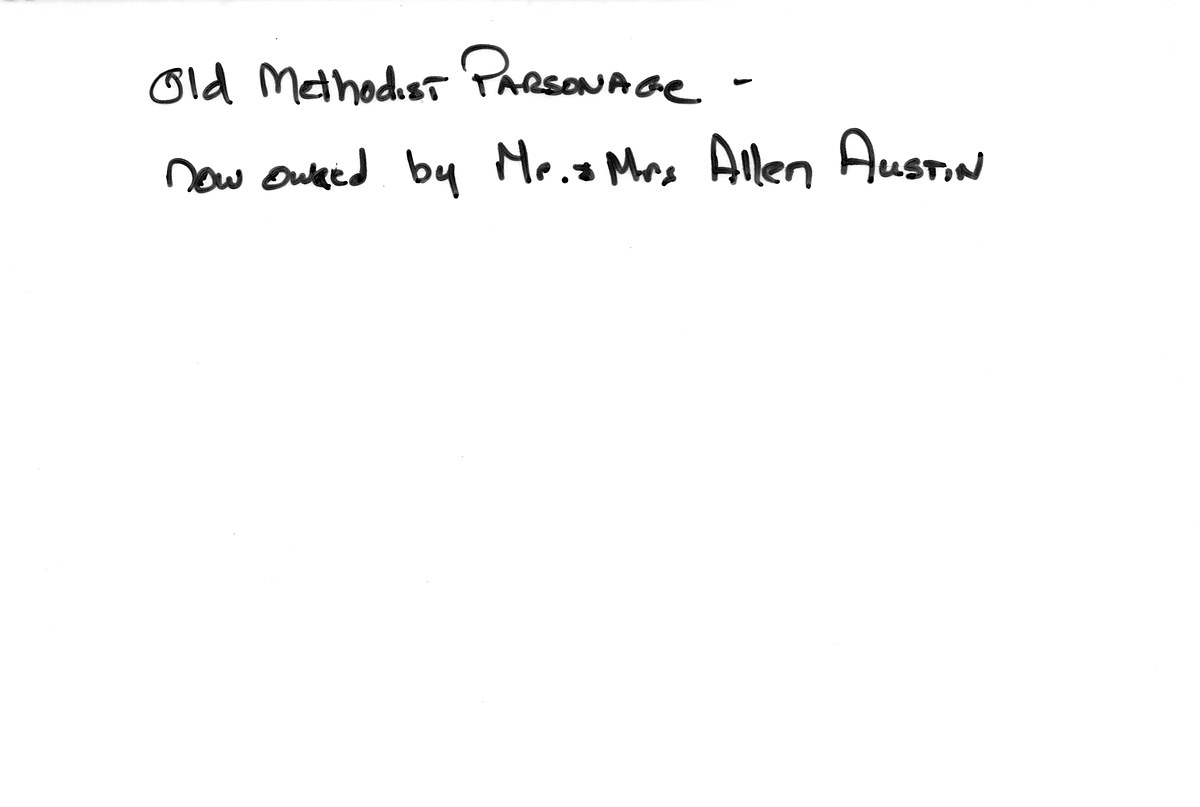 Old Methodist Parsonage -
now owned by Mr. & Mrs Allen Austin